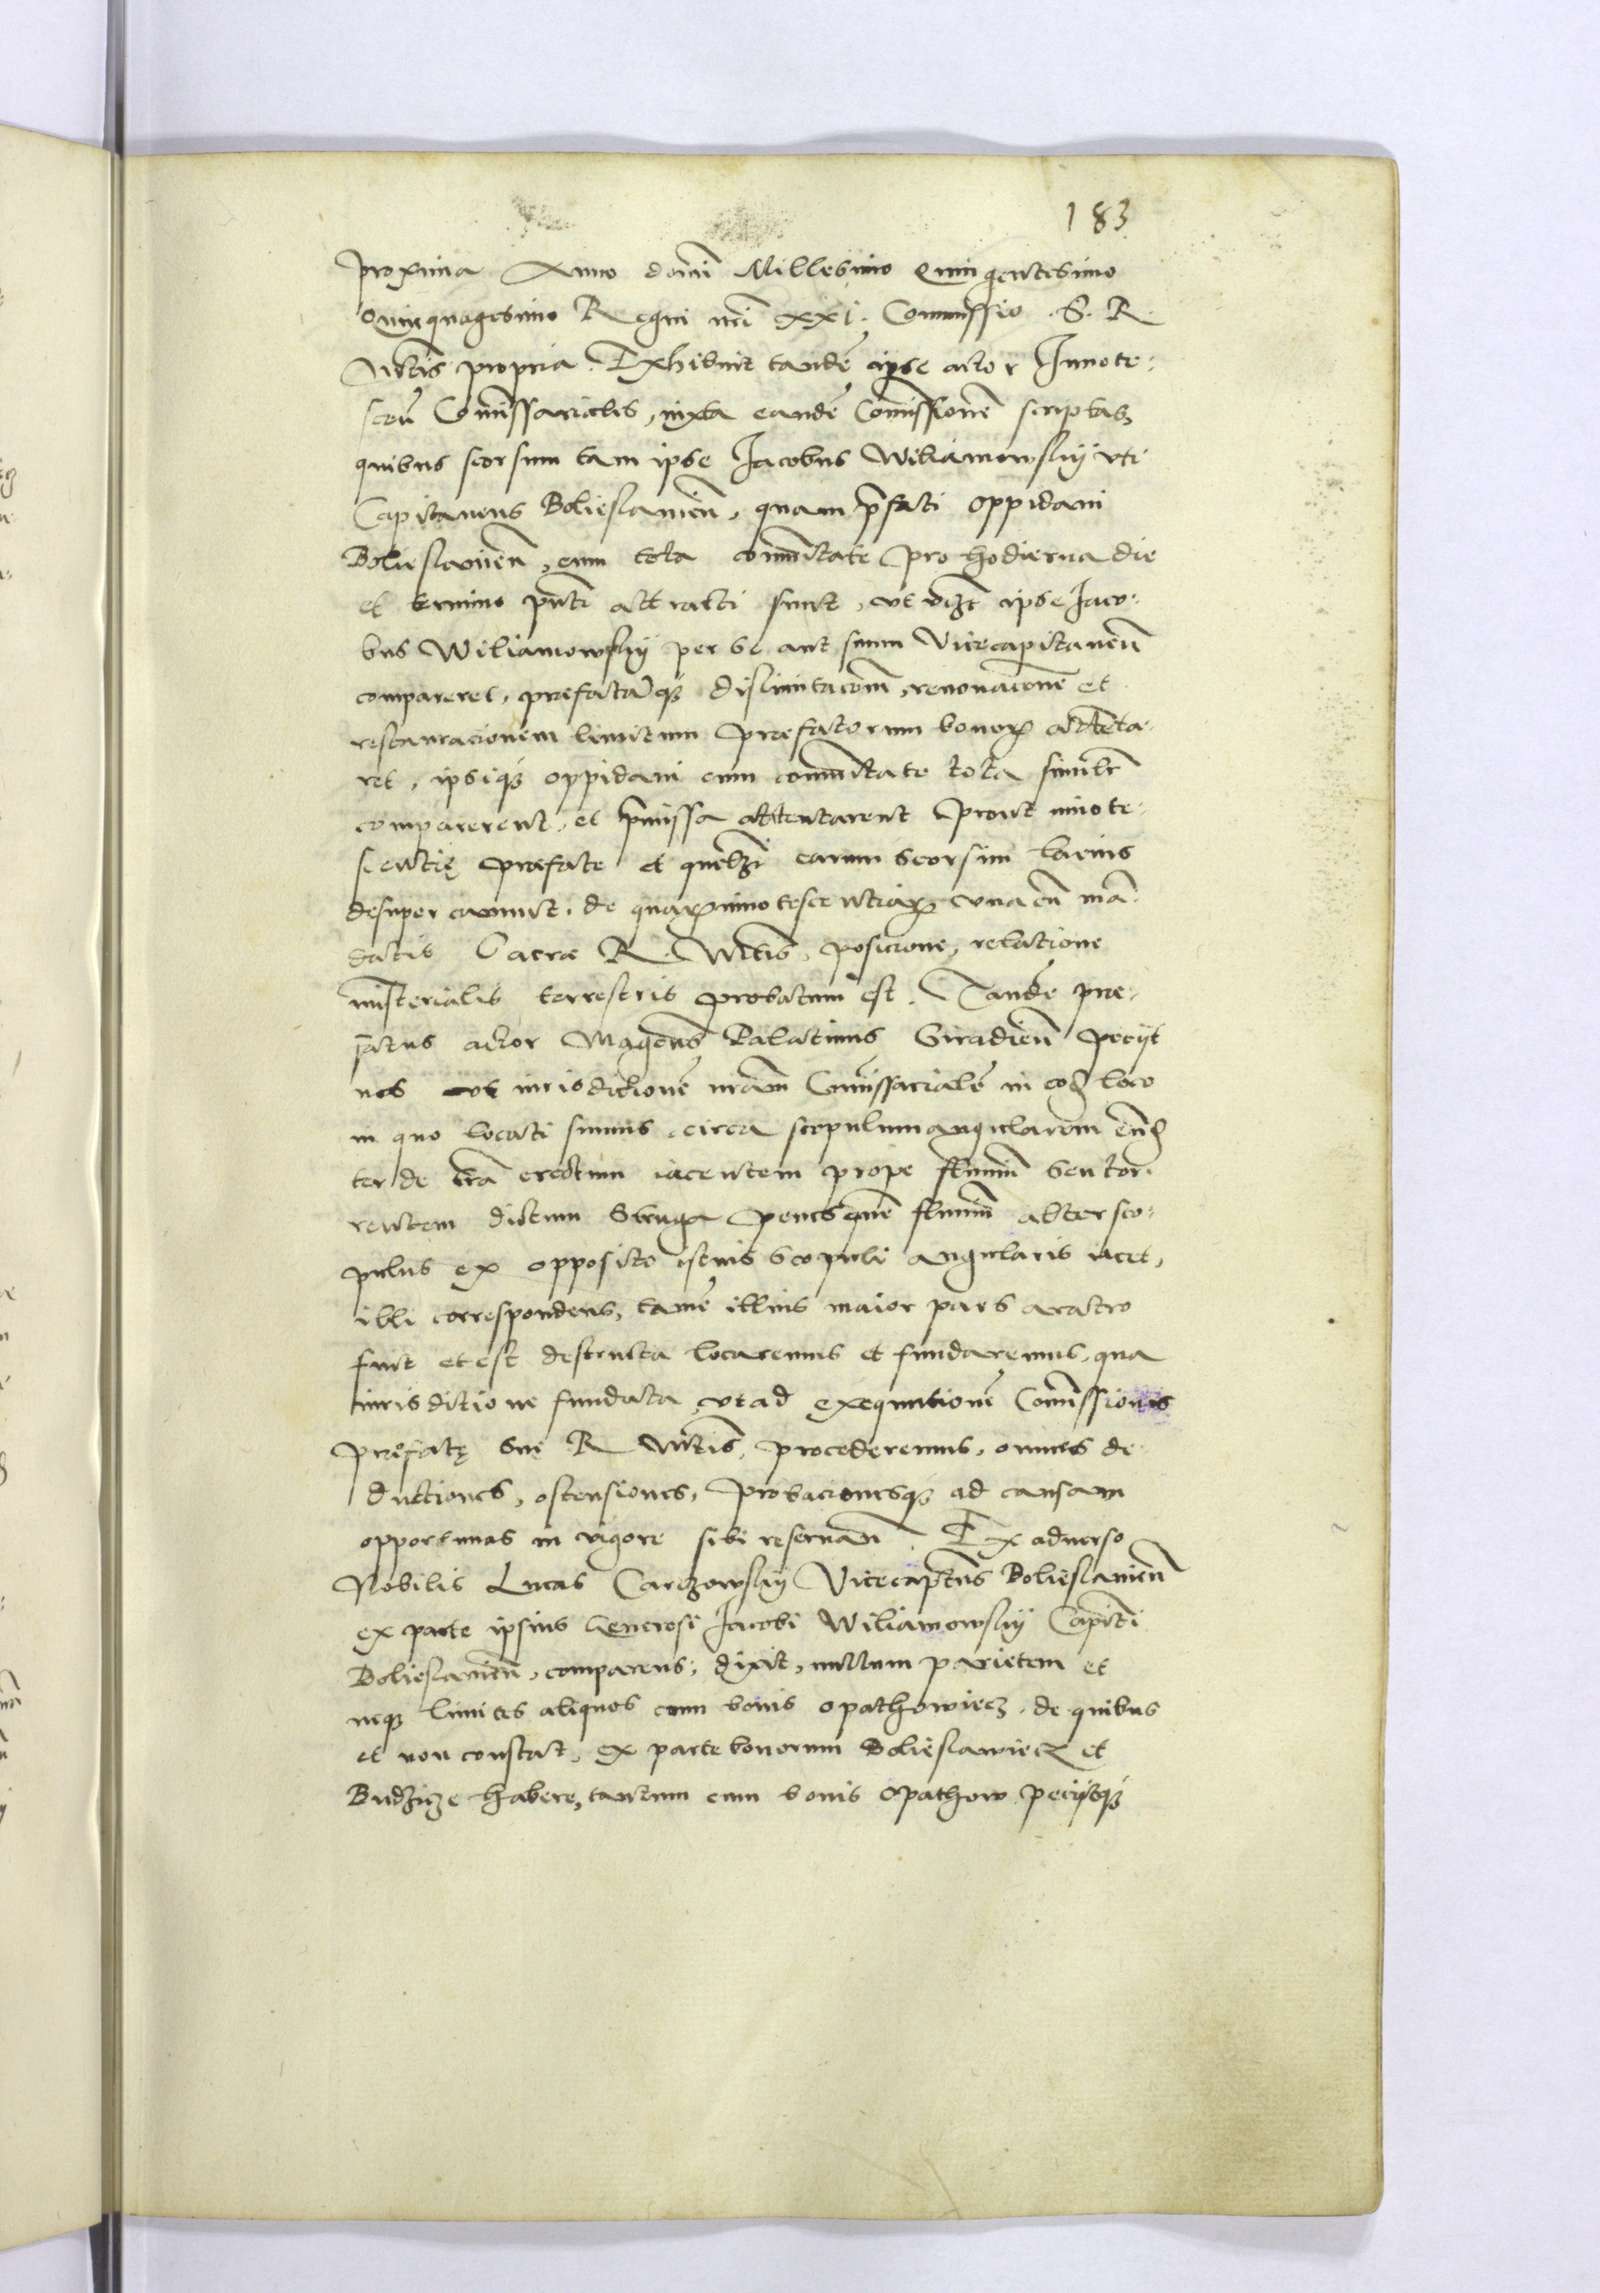 183
proxima Anno domi Millesimo Quingentesimo
Quinquagesimo Regni nri xxi. Commissio S. R.
Mtis propria. Exhibuit tande ipse actor Innote-
scen Comissariales, iuxta eande Comissione scriptas
quibus seorsum tam ipse Jacobus Wiliamowsky uti
Capitaneus Bolieslavien, quam pfati oppidani
Bolieslavien, cum tota comunitate pro hodierna die
et termino pnti attracti sunt, ut ipse Jaco-
bus Wiliamowsky per se aut suum Vicecapitaneu
compareret, praefataque dislimitacione, renovacione et
restauracionem limitum praefatorum bonor attenta-
ret, ipsique oppidani cum comunitate tota similr
comparerent, et pmissa attentarent prout innote-
scentię praefate et quelibet earum seorsim lacius
desuper canunt, de quar innotescentiar una cu ma-
datis Sacrae R. Mtis, posicione, relatione
misterialis terrestris probatum est. Tande prae-
fatus actor Magcus Palatinus Siradien peciit
nos ut iurisdictione nram Comissariale in eod loco
in quo locati sumus circa scopulum angularem
ter de tra erectum iacentem prope flumen seu tor-
rentem dictum Struga penes que flumen alter sco-
pulus ex opposito istius scopuli angularis iacet,
illi correspondens, tame illius maior pars aratro
fuit et est destructa locaremus et fundaremus, qua
iurisdictione fundata, ut ad exequutione Comissionis
praefatę Suę R Mtis, procederemus, omnes de-
ductiones, ostensiones, probacionesque ad causam
opportunas in vigore sibi reservan. Ex adverso
Nobilis Lucas Carczowsky Vicecaptus Bolieslavien
ex parte ipsius Generosi Jacobi Wiliamowsky Capiti
Bolieslavien, comparens, dixit, nullum parietem et
neque limites aliquos cum bonis Opathowiecz, de quibus
et non constat, ex parte bonorum Bolieslawiecz et
Budzicze habere, tantum cum bonis Opathow peciitque